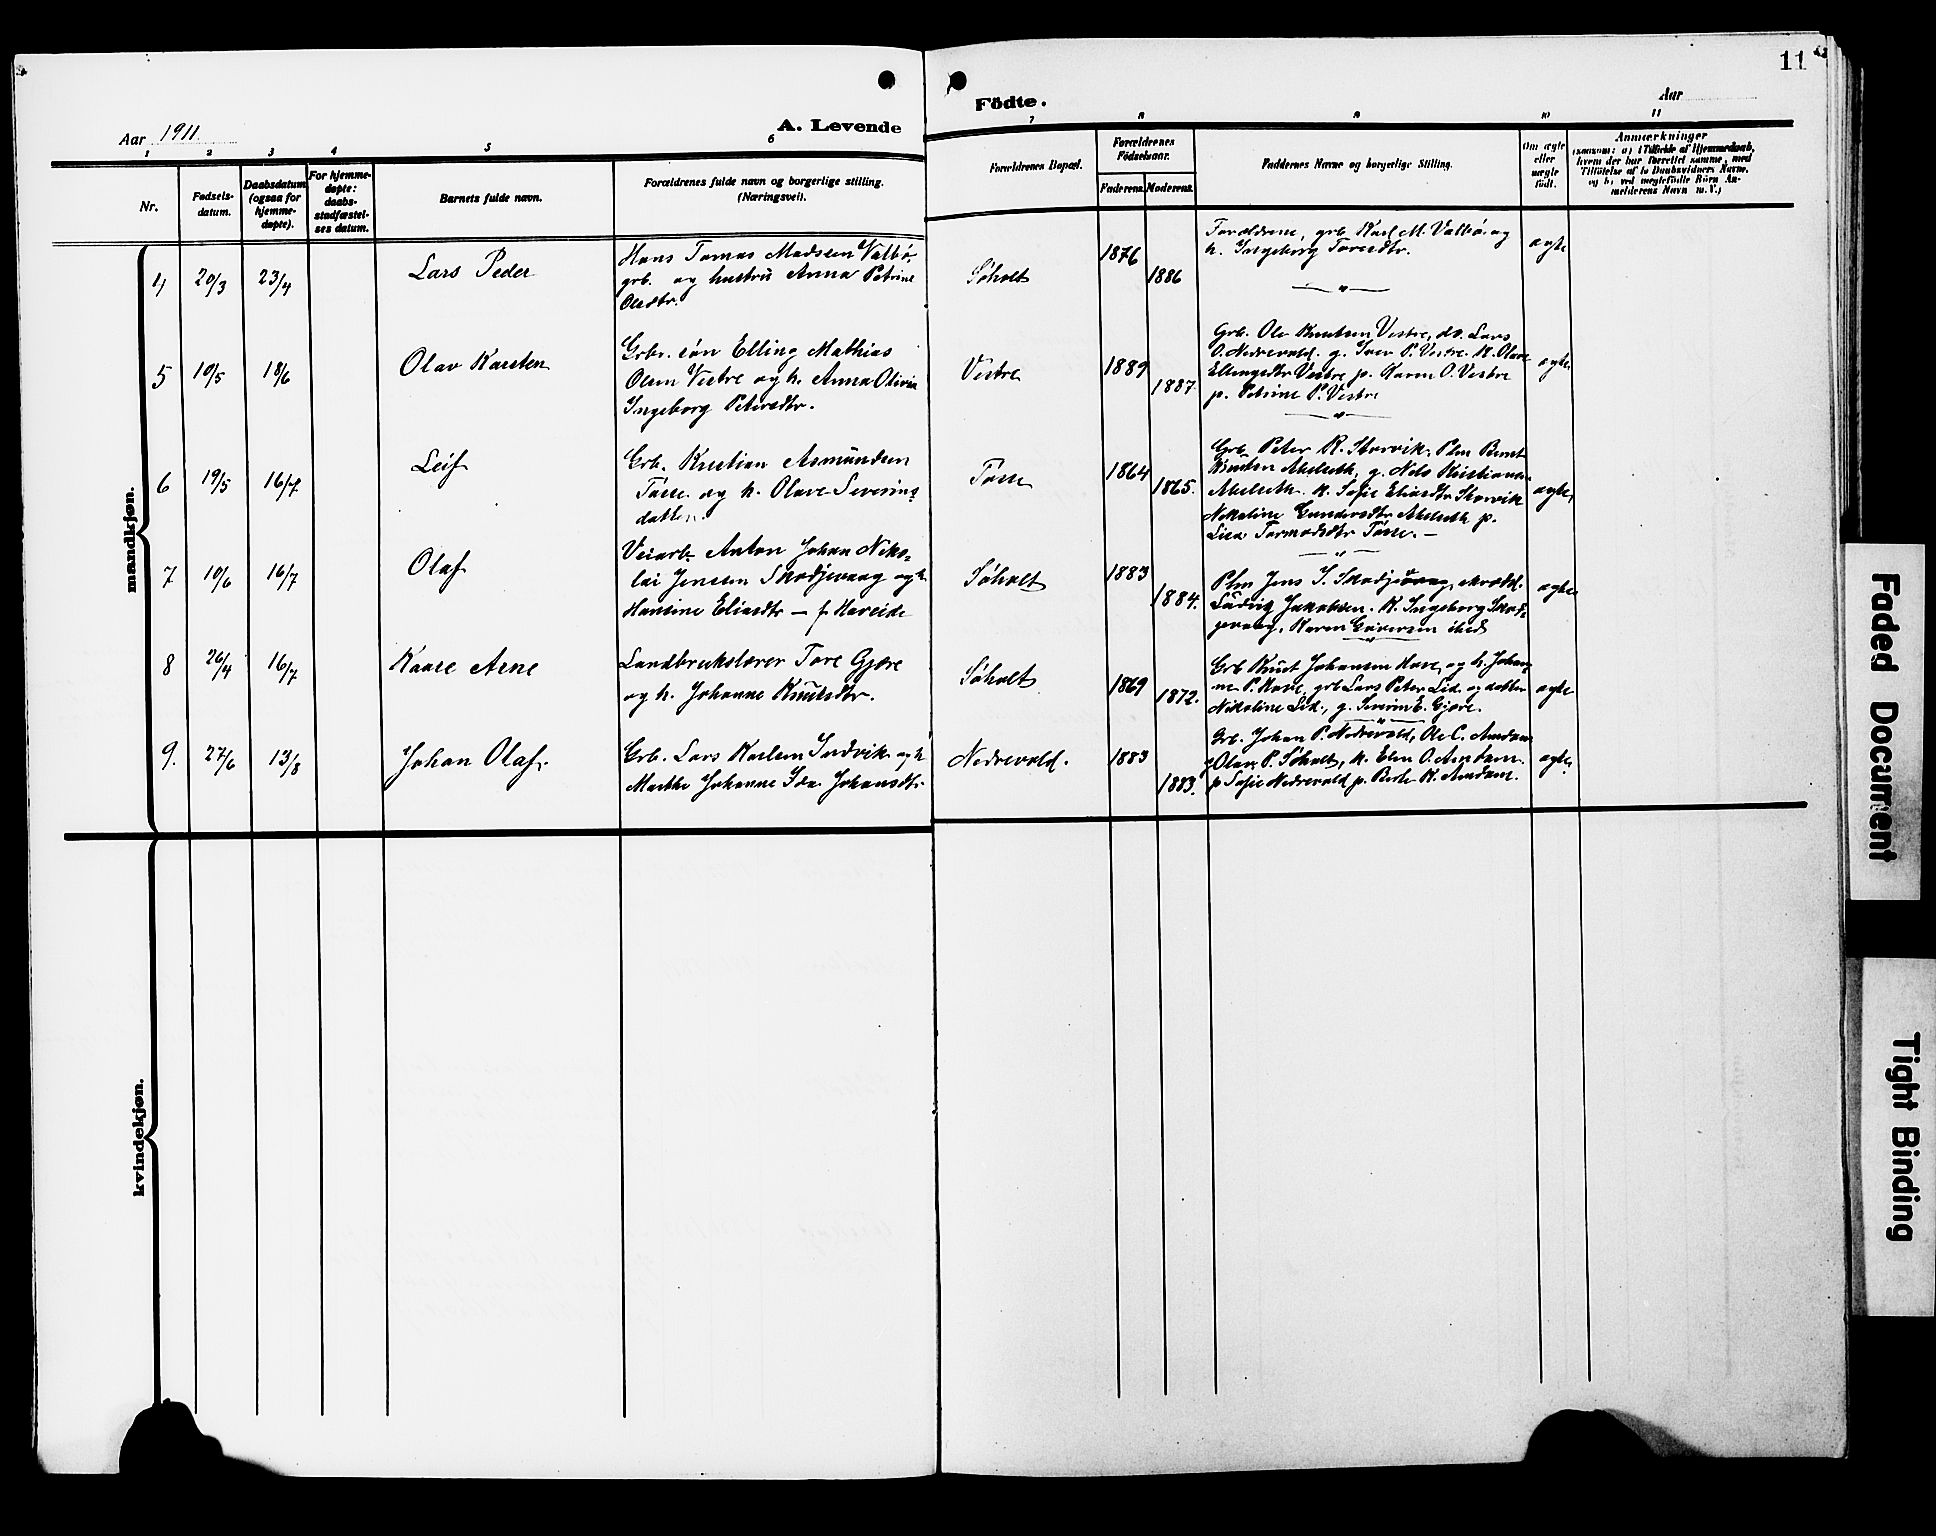 11
Aar 1911.
A. Levende
Födte.
Aar
1 2 3 4 5 6 7 8 9 10 11
Nr.
Fødsels-
datum.
Daabsdatum
(ogsaa for
hjemme-
døpte).
For hjemme-
døpte:
daabs-
stadfæstel-
ses datum.
Barnets fulde navn.
Forældrenes fulde navn og borgerlige stilling.
(Næringsvei).
Forældrenes Bopæl.
Forældrenes
Födselsaar.
Faderens. Moderens.
Faddernes Navne og borgerlige Stilling.
Om ægte
eller
uægte
födt.
Anmærkninger
(saasom: a) i Tilfælde af Hjemmedaab,
hvem der har forrettet samme, med
Tilföielse af to Daabsvidners Navne,
og b) ved uægtefödte Börn An-
melderens Navn m. V.)
mandkjøn.
4 20/3 23/4 Lars Peder
Hans Tomas Madssen Valbö,
grb. og hustru Anna Petrine
Olesdtr.
Søholt 1876 1886
Forældrene, grb. Karl M. Valbö og
h. Ingeborg Toresdtr.
ægte
5 10/5 18/6 Olav Karsten
Grbr. søn Elling Mathias
Olsen Vestre og h. Anna Olivia
Ingeborg Petersdtr.
Vestre 1889 1887.
Grb. Ole Knutsen Vestre, do. Lars
O. Nedrevold. g. Iver P. Vestre. K. Olave
Ellingsdtr Vestre p. Karen O. Vestre
p. Petrine P. Vestre
ægte.
6 19/5 16/7 Leif
Grb. Kristian Asmundsen
Tosse og h. Olave Severins-
datter.
Tosse 1864 1865.
Grb. Peter K. Storvik, Plm Bernt
Knutsen Akslreth, g. Nils Kristiansen
K. Sofie Eliasdtr Storvik
Nikoline Gundersdtr p.
Lisa Tormodsdtr Tosse. —
ægte,
7 10/6 16/7 Olaf
Veiarb. Anton Johan Niko-
lai Jenssen Skodjevaag og h.
Hansine Eliasdtr — f. Hareide
Søholt 1883 1884.
Plm Jens S. Skodjevaag,
Ludvig Jakobsen. K. Ingeborg Skod-
jevaag, Karen ibid
ægte
8 26/4 16/7 Kaare Arne
Landbrukslærer Tore Gjøre
og h. Johanne Knutsdtr.
Søholt 1869 1872.
Grb Knut Johansen Hove og h. Johan-
ne P. Hove, grb Lars Peter Lid og datter
Nikoline Lid., g. Severin E. Gjøre.
ægte
9. 27/6 13/8 Johan Olaf.
Grb. Lars Karlsen Indvik og h.
Marthe Johanne Ida Johansdtr
Nedrevold. 1883 1883.
Grb. Johan P. Nedrevold, Ole C. Amdam
Olav P. Søholt, K. Elen O. Amdam.
p Sofie Nedrevold p. Berte K. Amdam.
ægte.
kvindekjøn.
Faded Document
Tight Binding